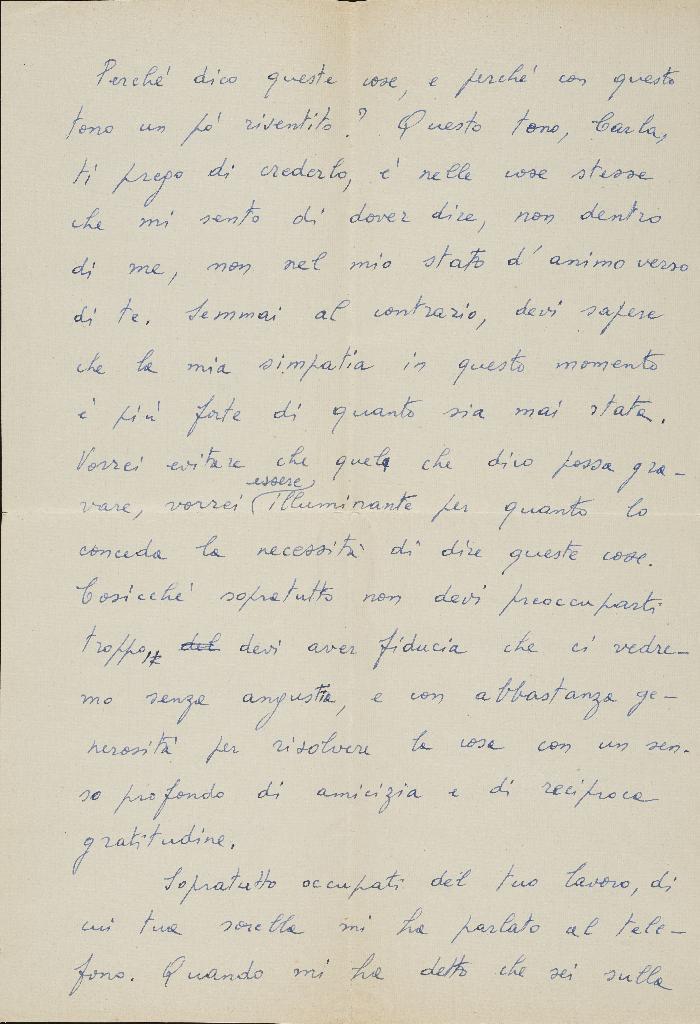 Perché dico queste cose, e perché con questo
tono un pò risentito? Questo tono, Carla,
ti prego di crederlo, è nelle cose stesse
che mi sento di dover dire, non dentro
di me, non nel mio stato d'animo verso
di te. Semmai al contrario, devi sapere
che la mia simpatia in questo momento
è più forte di quanto sia mai stata.
Vorrei evitare che quel che dico possa gra-
vare, vorrei essere illuminante per quanto lo
conceda la necessità di dire queste cose.
Cosicché sopratutto non devi preoccuparti
troppo, del devi aver fiducia che ci vedre-
mo senza angustia, e con abbastanza ge-
nerosità per risolvere la cosa con un sen-
so profondo di amicizia e di reciproca
gratitudine.
Sopratutto occupati del tuo lavoro, di
cui tua sorella mi ha parlato al tele-
fono. Quando mi ha detto che sei sulla